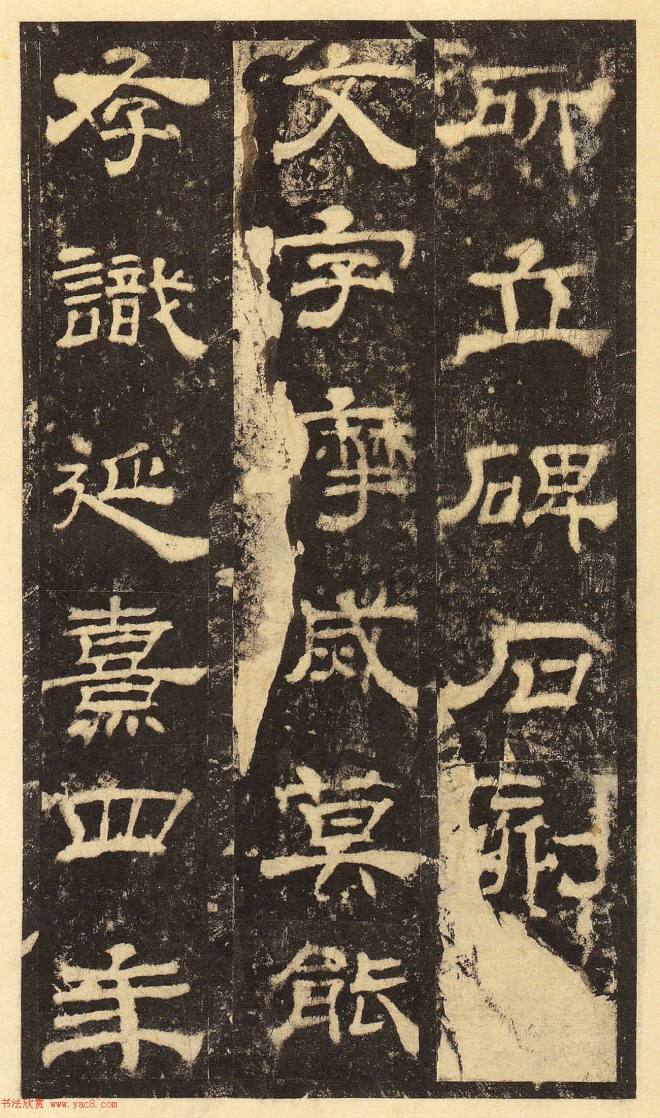 所立碑石刻
文字摩威莫能
存識延熹四年
书法欣赏 www.yac8.com